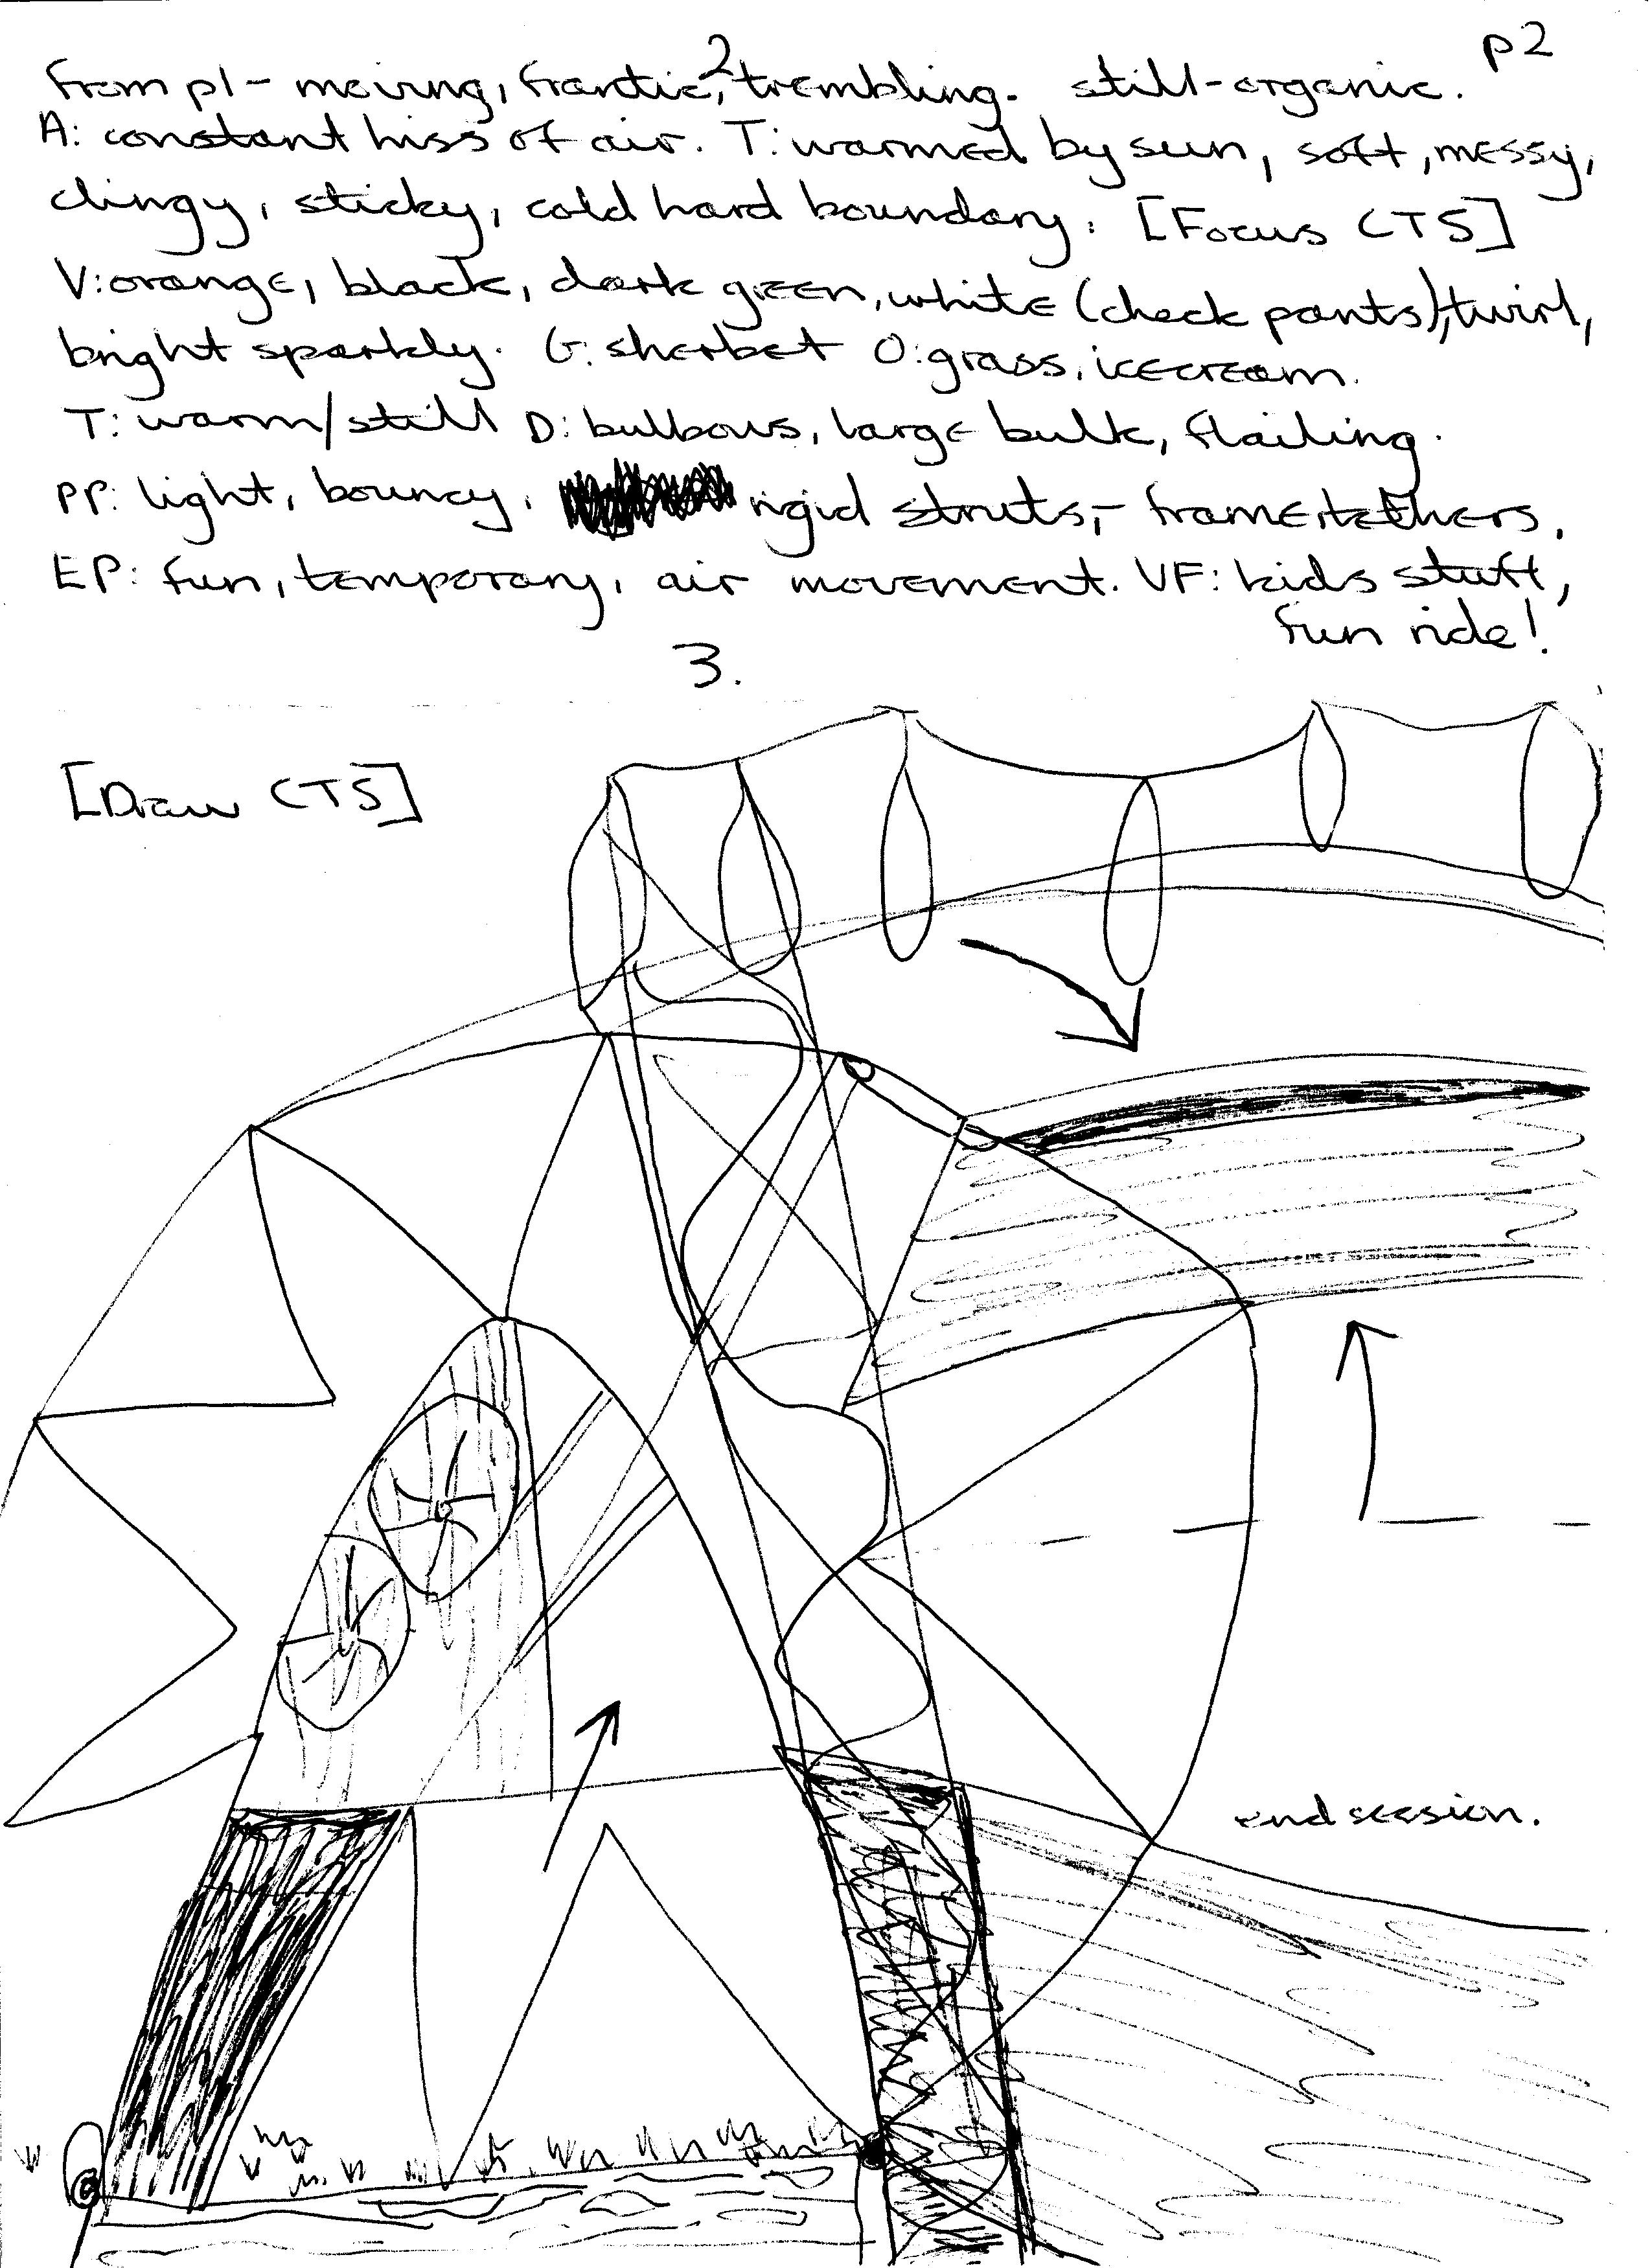 p2
from p1 - moving, frantic,² trembling. still-organic.
A: constant hiss of air. T: warmed by sun, soft, messy,
clingy, sticky, cold hard boundary. [Focus CTS]
V: orange, black, dark green, white (check pants), twirl,
bright sparkly. G: sherbet O: grass, icecream.
T: warm/still D: bulbous, large bulk, flailing.
PP: light, bouncy, rigid struts, - frame, tethers.
EP: fun, temporary, air movement. VF: kids stuff,
fun ride!
3.
[Draw CTS]
end session.